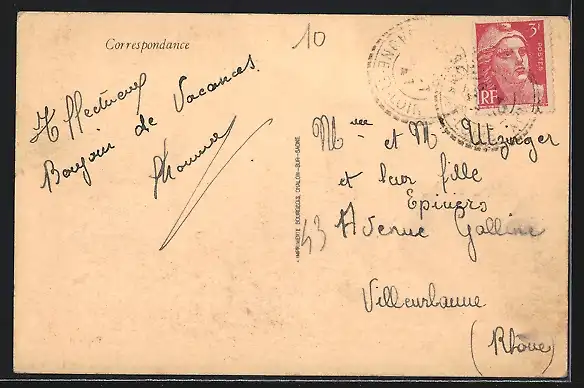 Correspondance
10
Affectueux
Bonjour de Vacances.
IMPRIMERIE BOURGEOIS, CHALON-SUR-SAONE
53
3F
POSTES
RF
Mme et M Utzinger
et leur fille
Epiciers
Avenue Galline
Villeurbanne
(Rhône)